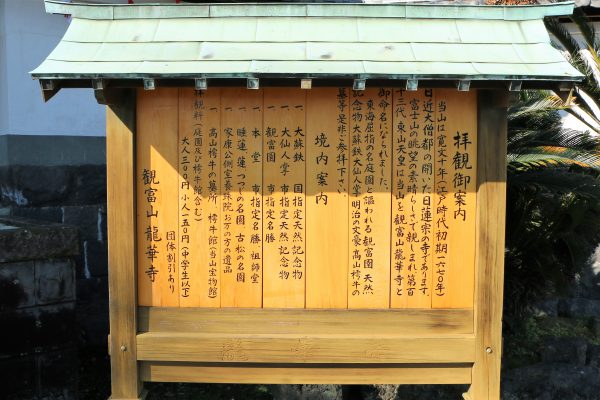 拝観御案内
当山は寛文十年(江戸時代初期一六七〇年)
日近大僧都の開いた日蓮宗の寺であります。
富士山の眺望の素晴らしさで親しまれ、第百
十三代東山天皇は当山を観富山龍華寺と
御命名になられました。
東海屈指の名庭園と謳われる観富園 天然
記念物大蘇鉄大仙人掌 明治の文豪高山樗牛の
墓等是非ご参拝下さい。
境内案内
一、大蘇鉄 国指定天然記念物
一、大仙人掌 市指定天然記念物
一、観富園 市指定名勝
一、本堂 市指定名勝 祖師堂
一、睡蓮 蓮 つつじの名園 古松の名園
一、家康公側室養珠院お万の方の遺品
一、高山樗牛の墓所 樗牛館(当山宝物館)
拝観料(庭園及び樗牛館含む)
大人三〇〇円 小人一五〇円(中学生以下)
団体割引あり
観富山 龍華寺